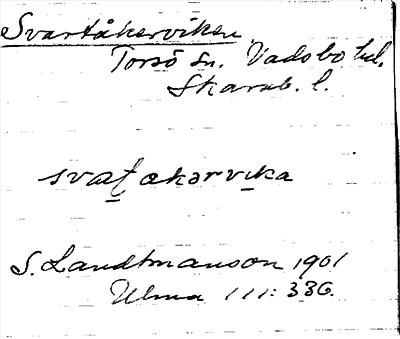 Svartåkerviken
Torsö sn. Vadsbo hd.
Skarab. l.
svaʈakərvika
S. Landtmanson 1901
Ulma 111: 336.